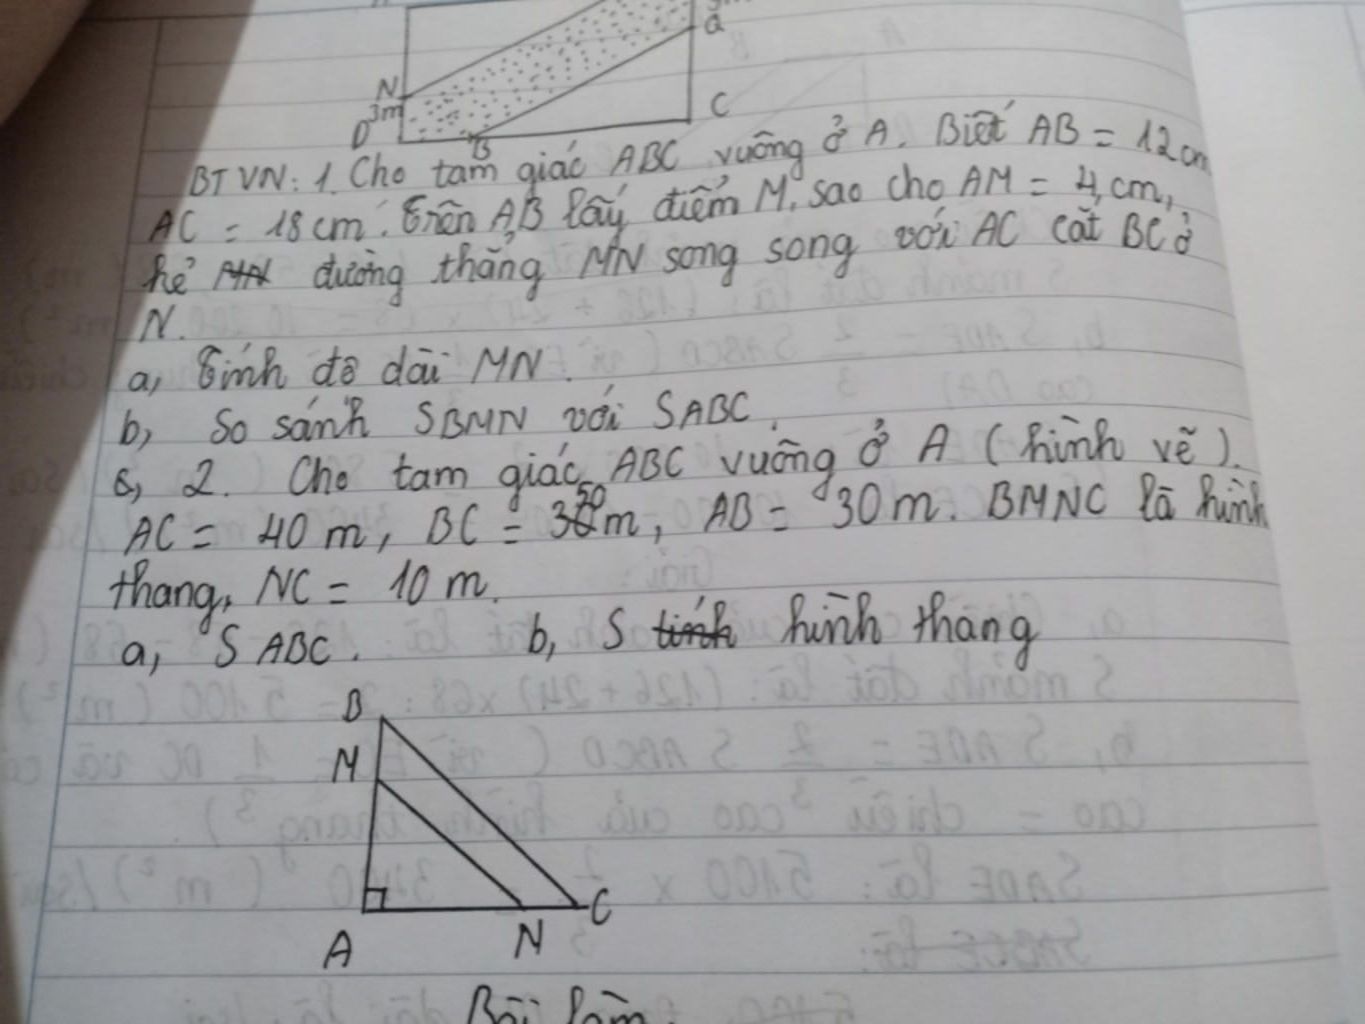 a
N
3m
D
B
C
BTVN: 1. Cho tam giác ABC vuông ở A. Biết AB = 12cm
AC = 18cm. Trên AB lấy điểm M, sao cho AM = 4cm,
kẻ MN đường thẳng MN song song với AC cắt BC ở
N.
a, Tính độ dài MN.
b, So sánh SBMN với SABC.
2. Cho tam giác ABC vuông ở A (hình vẽ).
AC = 40m, BC = 50m, AB = 30m. BMNC là hình
thang, NC = 10m.
a, SABC. b, S tính hình thang
B
M
C
A
N
Bài làm.